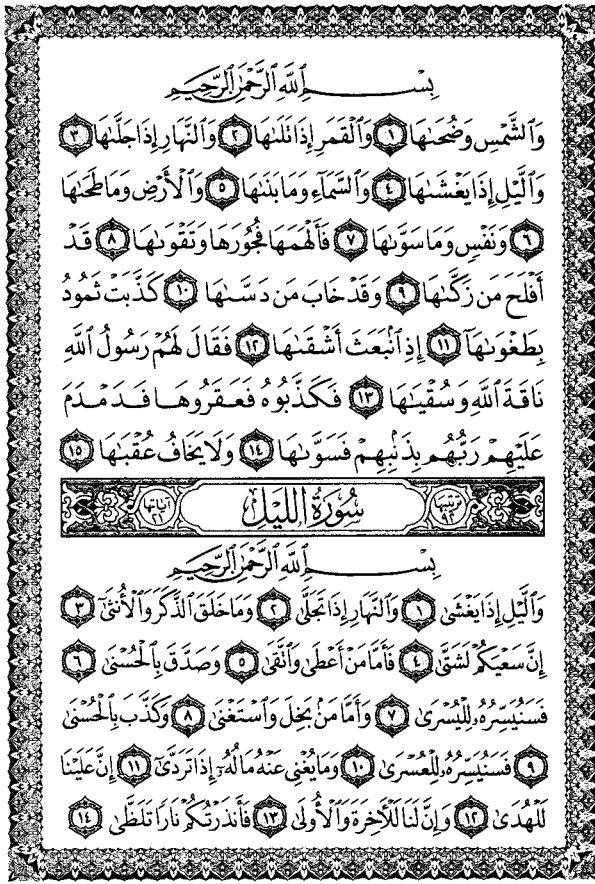 بِسْمِ ٱللَّهِ ٱلرَّحْمَٰنِ ٱلرَّحِيمِ
وَٱلشَّمْسِ وَضُحَىٰهَا ١ وَٱلْقَمَرِ إِذَا تَلَىٰهَا ٢ وَٱلنَّهَارِ إِذَا جَلَّىٰهَا ٣
وَٱلَّيْلِ إِذَا يَغْشَىٰهَا ٤ وَٱلسَّمَآءِ وَمَا بَنَىٰهَا ٥ وَٱلْأَرْضِ وَمَا طَحَىٰهَا
٦ وَنَفْسٍ وَمَا سَوَّىٰهَا ٧ فَأَلْهَمَهَا فُجُورَهَا وَتَقْوَىٰهَا ٨ قَدْ
أَفْلَحَ مَن زَكَّىٰهَا ٩ وَقَدْ خَابَ مَن دَسَّىٰهَا ١٠ كَذَّبَتْ ثَمُودُ
بِطَغْوَىٰهَآ ١١ إِذِ ٱنۢبَعَثَ أَشْقَىٰهَا ١٢ فَقَالَ لَهُمْ رَسُولُ ٱللَّهِ
نَاقَةَ ٱللَّهِ وَسُقْيَىٰهَا ١٣ فَكَذَّبُوهُ فَعَقَرُوهَا فَدَمْدَمَ
عَلَيْهِمْ رَبُّهُم بِذَنۢبِهِمْ فَسَوَّىٰهَا ١٤ وَلَا يَخَافُ عُقْبَىٰهَا ١٥
مرتيبها ٩٢ سُورَةُ اللَّيْلِ آياتها ٢١
بِسْمِ ٱللَّهِ ٱلرَّحْمَٰنِ ٱلرَّحِيمِ
وَٱلَّيْلِ إِذَا يَغْشَىٰ ١ وَٱلنَّهَارِ إِذَا تَجَلَّىٰ ٢ وَمَا خَلَقَ ٱلذَّكَرَ وَٱلْأُنثَىٰٓ ٣
إِنَّ سَعْيَكُمْ لَشَتَّىٰ ٤ فَأَمَّا مَنْ أَعْطَىٰ وَٱتَّقَىٰ ٥ وَصَدَّقَ بِٱلْحُسْنَىٰ ٦
فَسَنُيَسِّرُهُۥ لِلْيُسْرَىٰ ٧ وَأَمَّا مَنۢ بَخِلَ وَٱسْتَغْنَىٰ ٨ وَكَذَّبَ بِٱلْحُسْنَىٰ
٩ فَسَنُيَسِّرُهُۥ لِلْعُسْرَىٰ ١٠ وَمَا يُغْنِى عَنْهُ مَالُهُۥٓ إِذَا تَرَدَّىٰٓ ١١ إِنَّ عَلَيْنَا
لَلْهُدَىٰ ١٢ وَإِنَّ لَنَا لَلْءَاخِرَةَ وَٱلْأُولَىٰ ١٣ فَأَنذَرْتُكُمْ نَارًا تَلَظَّىٰ ١٤